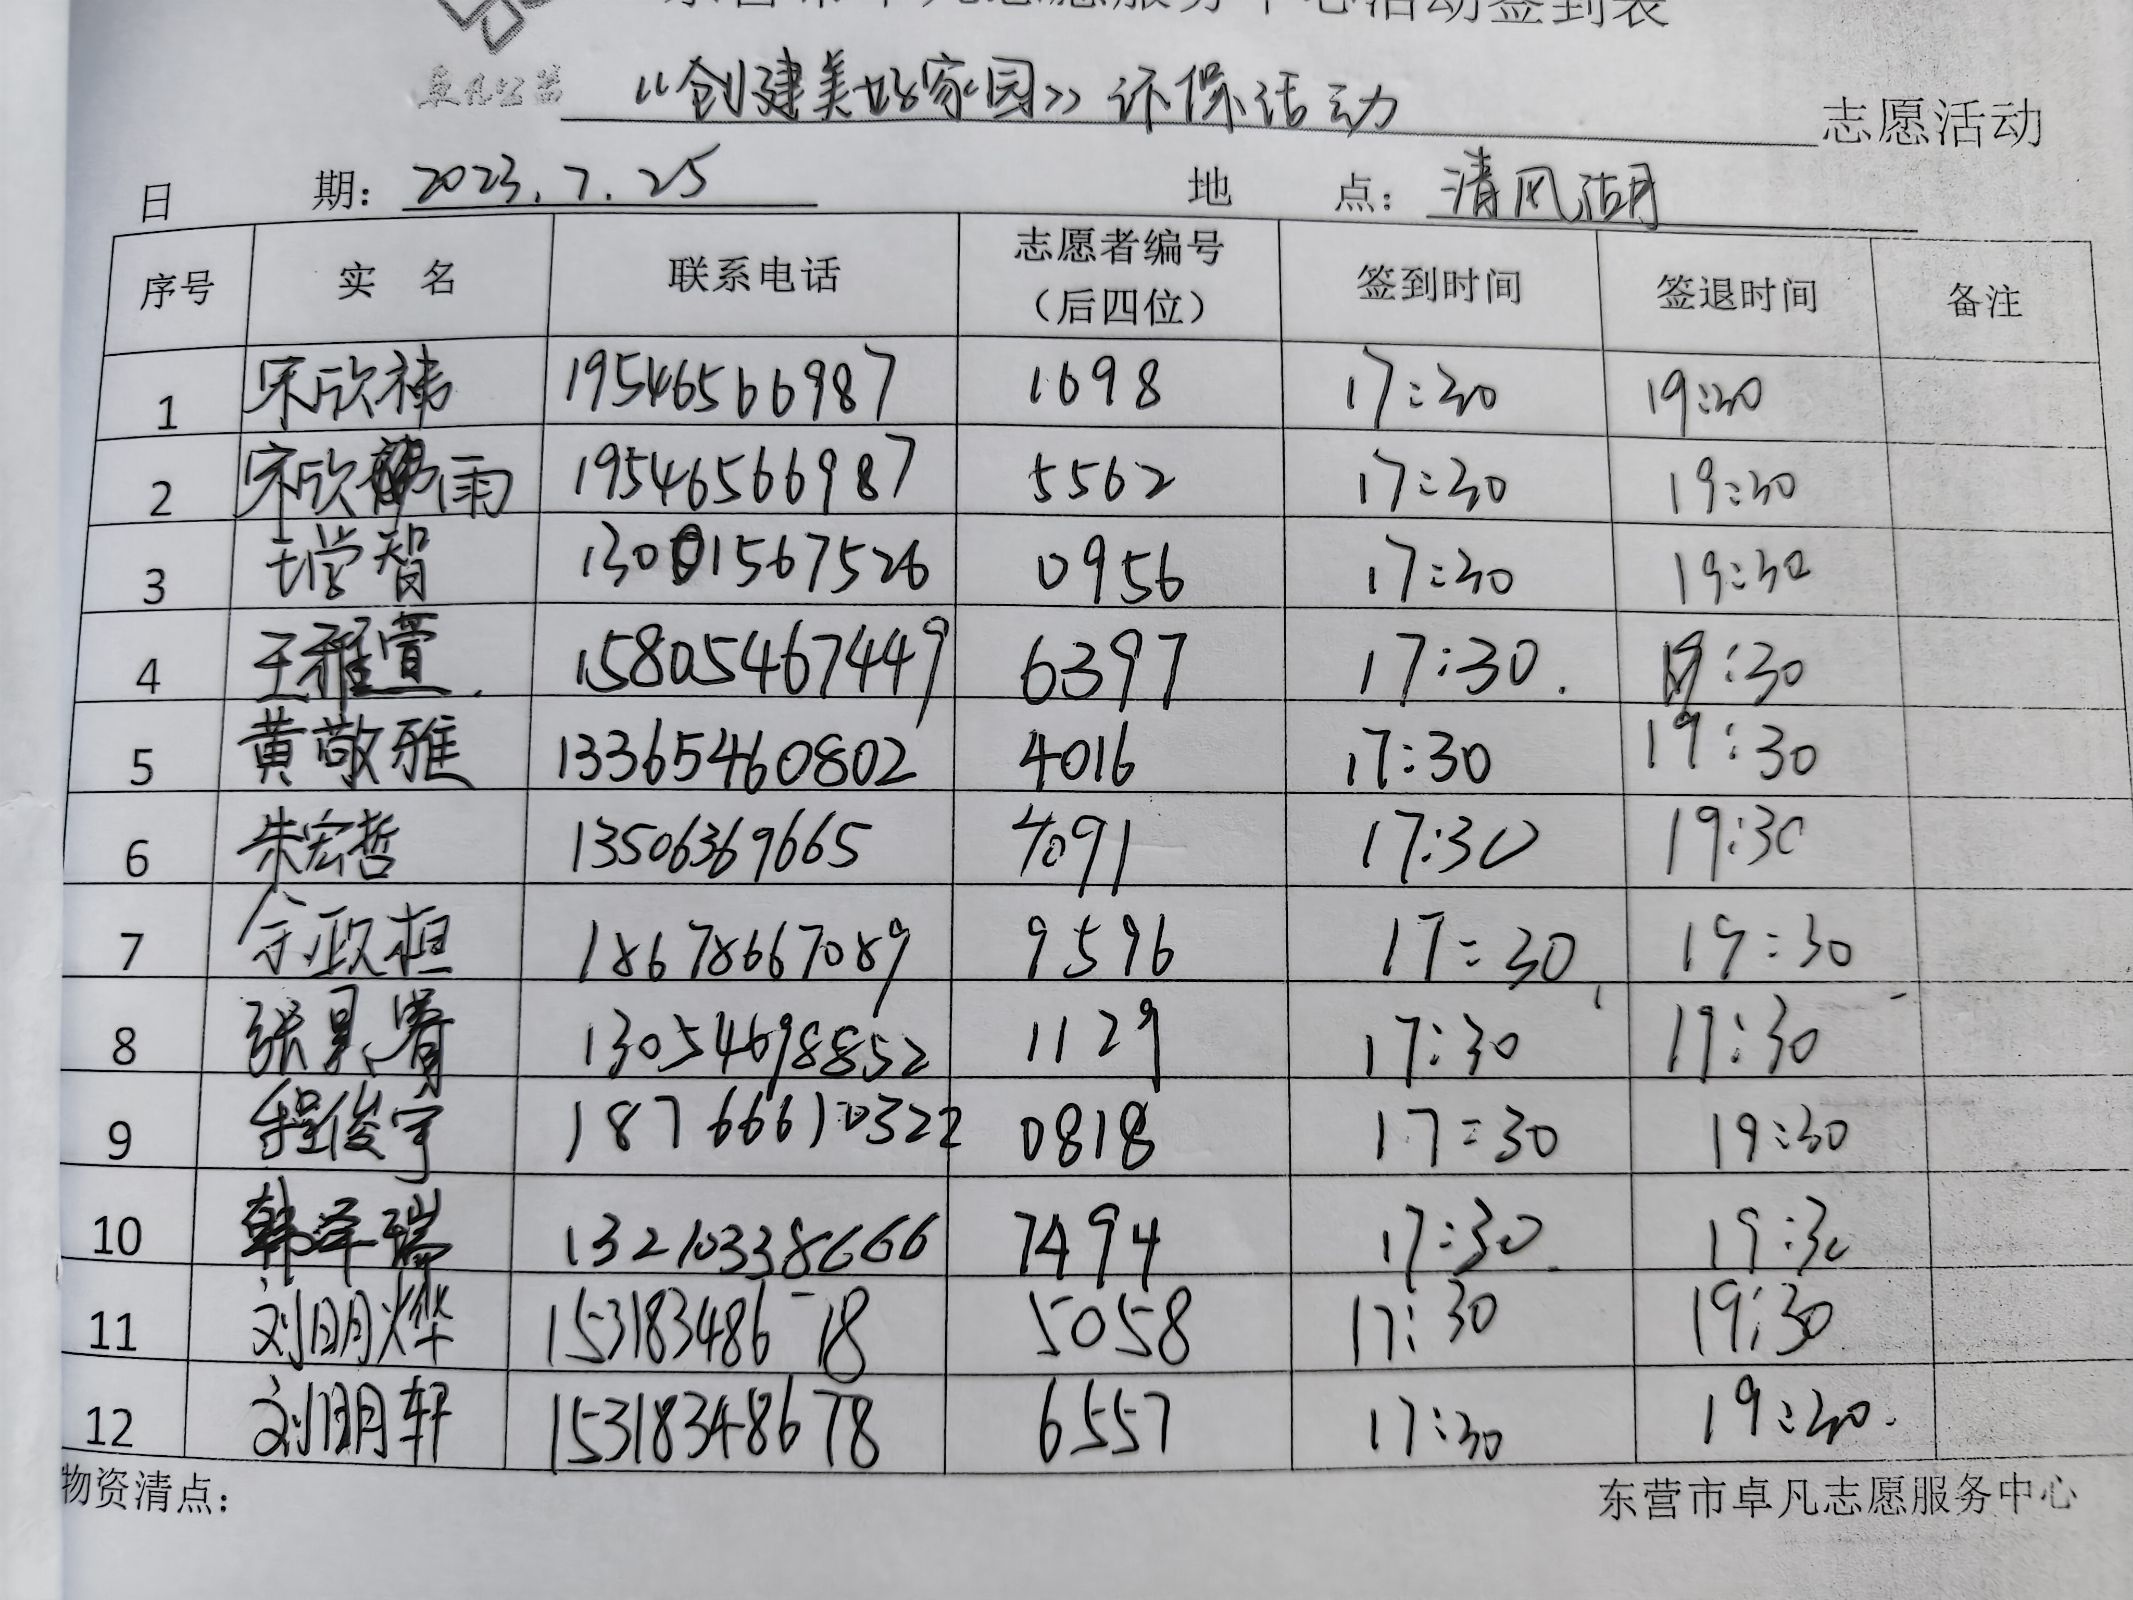 东营市卓凡志愿服务中心活动签到表
卓凡公益 《创建美好家园》环保活动 志愿活动
日 期：2023.7.25 地 点：清风湖
序号 实 名 联系电话 志愿者编号（后四位） 签到时间 签退时间 备注
1 宋欣祎 19546566987 1698 17:30 19:30
2 宋欣雨 19546566987 5562 17:30 19:30
3 学智 13001567526 0956 17:30 19:30
4 王雅萱 15805467449 6397 17:30 19:30
5 黄敬雅 13365460802 4016 17:30 19:30
6 朱宏哲 13506369665 4091 17:30 19:30
7 政桓 18678667089 9596 17:30 19:30
8 张 13054698852 1129 17:30 19:30
9 程俊宇 18766610322 0818 17:30 19:30
10 韩泽瑞 13210338666 7494 17:30 19:30
11 刘明烨 153183486 18 5058 17:30 19:30
12 刘明轩 15318348678 6557 17:30 19:30
物资清点： 东营市卓凡志愿服务中心